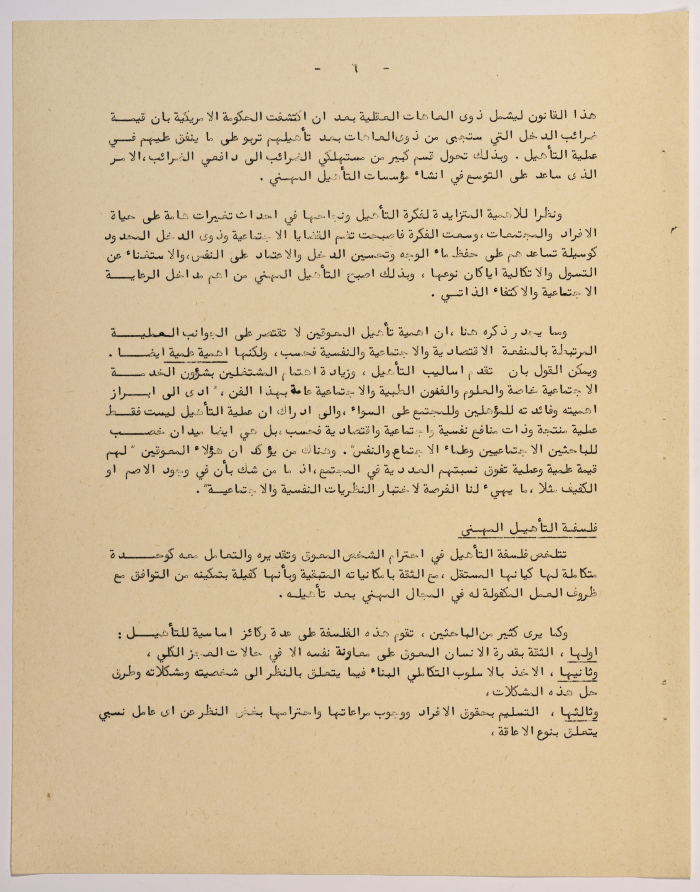 - ٦ -
هذا القانون ليشمل ذوى العاهات العقلية بعد ان اكتشفت الحكومة الامريكية بان قيمة
ضرائب الدخل التي ستجبى من ذوى العاهات بعد تأهيلهم تربو على ما ينفق عليهم في
عملية التأهيل . وبذلك تحول قسم كبير من مستهلكي الضرائب الى دافعي الضرائب ،الامر
الذى ساعد على التوسع في انشاء مؤسسات التأهيل المهني .
ونظرا للاهمية المتزايدة لفكرة التأهيل ونجاحها في احداث تغيرات هامة على حياة
الافراد والمجتمعات ،وسعت الفكرة فاصبحت تضم القضايا الاجتماعية وذوى الدخل المحدود
كوسيلة تساعدهم على حفظ ماء الوجه وتحسين الدخل والاعتماد على النفس ،والاستغناء عن
التسول والاتكالية اياكان نوعها ، وبذلك اصبح التأهيل المهني من اهم مداخل الرعاية
الاجتماعية والاكتفاء الذاتي .
ومما يجدر ذكره هنا ،ان اهمية تأهيل المعوقين لا تقتصر على الجوانب العملية
المرتبطة بالمنفعة الاقتصادية والاجتماعية والنفسية فحسب ، ولكنها اهمية علمية ايضا .
ويمكن القول بان تقدم اساليب التأهيل ، وزيادة اهتمام المشتغلين بشؤون الخدمة
الاجتماعية خاصة والعلوم والفنون الطبية والاجتماعية عامة بهذا الفن ، "ادى الى ابراز
اهميته وفائدته للمؤهلين وللمجتمع على السواء ،والى ادراك ان عملية التأهيل ليست فقط
عملية منتجة وذات منافع نفسية واجتماعية واقتصادية فحسب ،بل هي ايضا ميدان خصب
للباحثين الاجتماعيين وعلماء الاجتماع والنفس" . وهناك من يؤكد ان هؤلاء المعوقين "لهم
قيمة علمية وعملية تفوق نسبتهم العددية في المجتمع ،اذ ما من شك بأن في وجود الاصم او
الكفيف مثلا ،ما يهيء لنا الفرصة لاختبار النظريات النفسية والاجتماعية" .
فلسفة التأهيل المهني
تتلخص فلسفة التأهيل في احترام الشخص المعوق وتقديره والتعامل معه كوحدة
متكاملة لها كيانها المستقل ،مع الثقة بامكانياته المتبقية وبأنها كفيلة بتمكينه من التوافق مع
ظروف العمل المكفولة له في المجال المهني بعد تأهيله .
وكما يرى كثير من الباحثين ، تقوم هذه الفلسفة على عدة ركائز اساسية للتأهيل :
اولها ، الثقة بقدرة الانسان المعوق على معاونة نفسه الا في حالات العجز الكلي ،
وثانيها ، الاخذ بالاسلوب التكاملي البناء فيما يتعلق بالنظر الى شخصيته ومشكلاته وطرق
حل هذه المشكلات ،
وثالثها ، التسليم بحقوق الافراد ووجوب مراعاتها واحترامها بغض النظر عن اى عامل نسبي
يتعلق بنوع الاعاقة ،